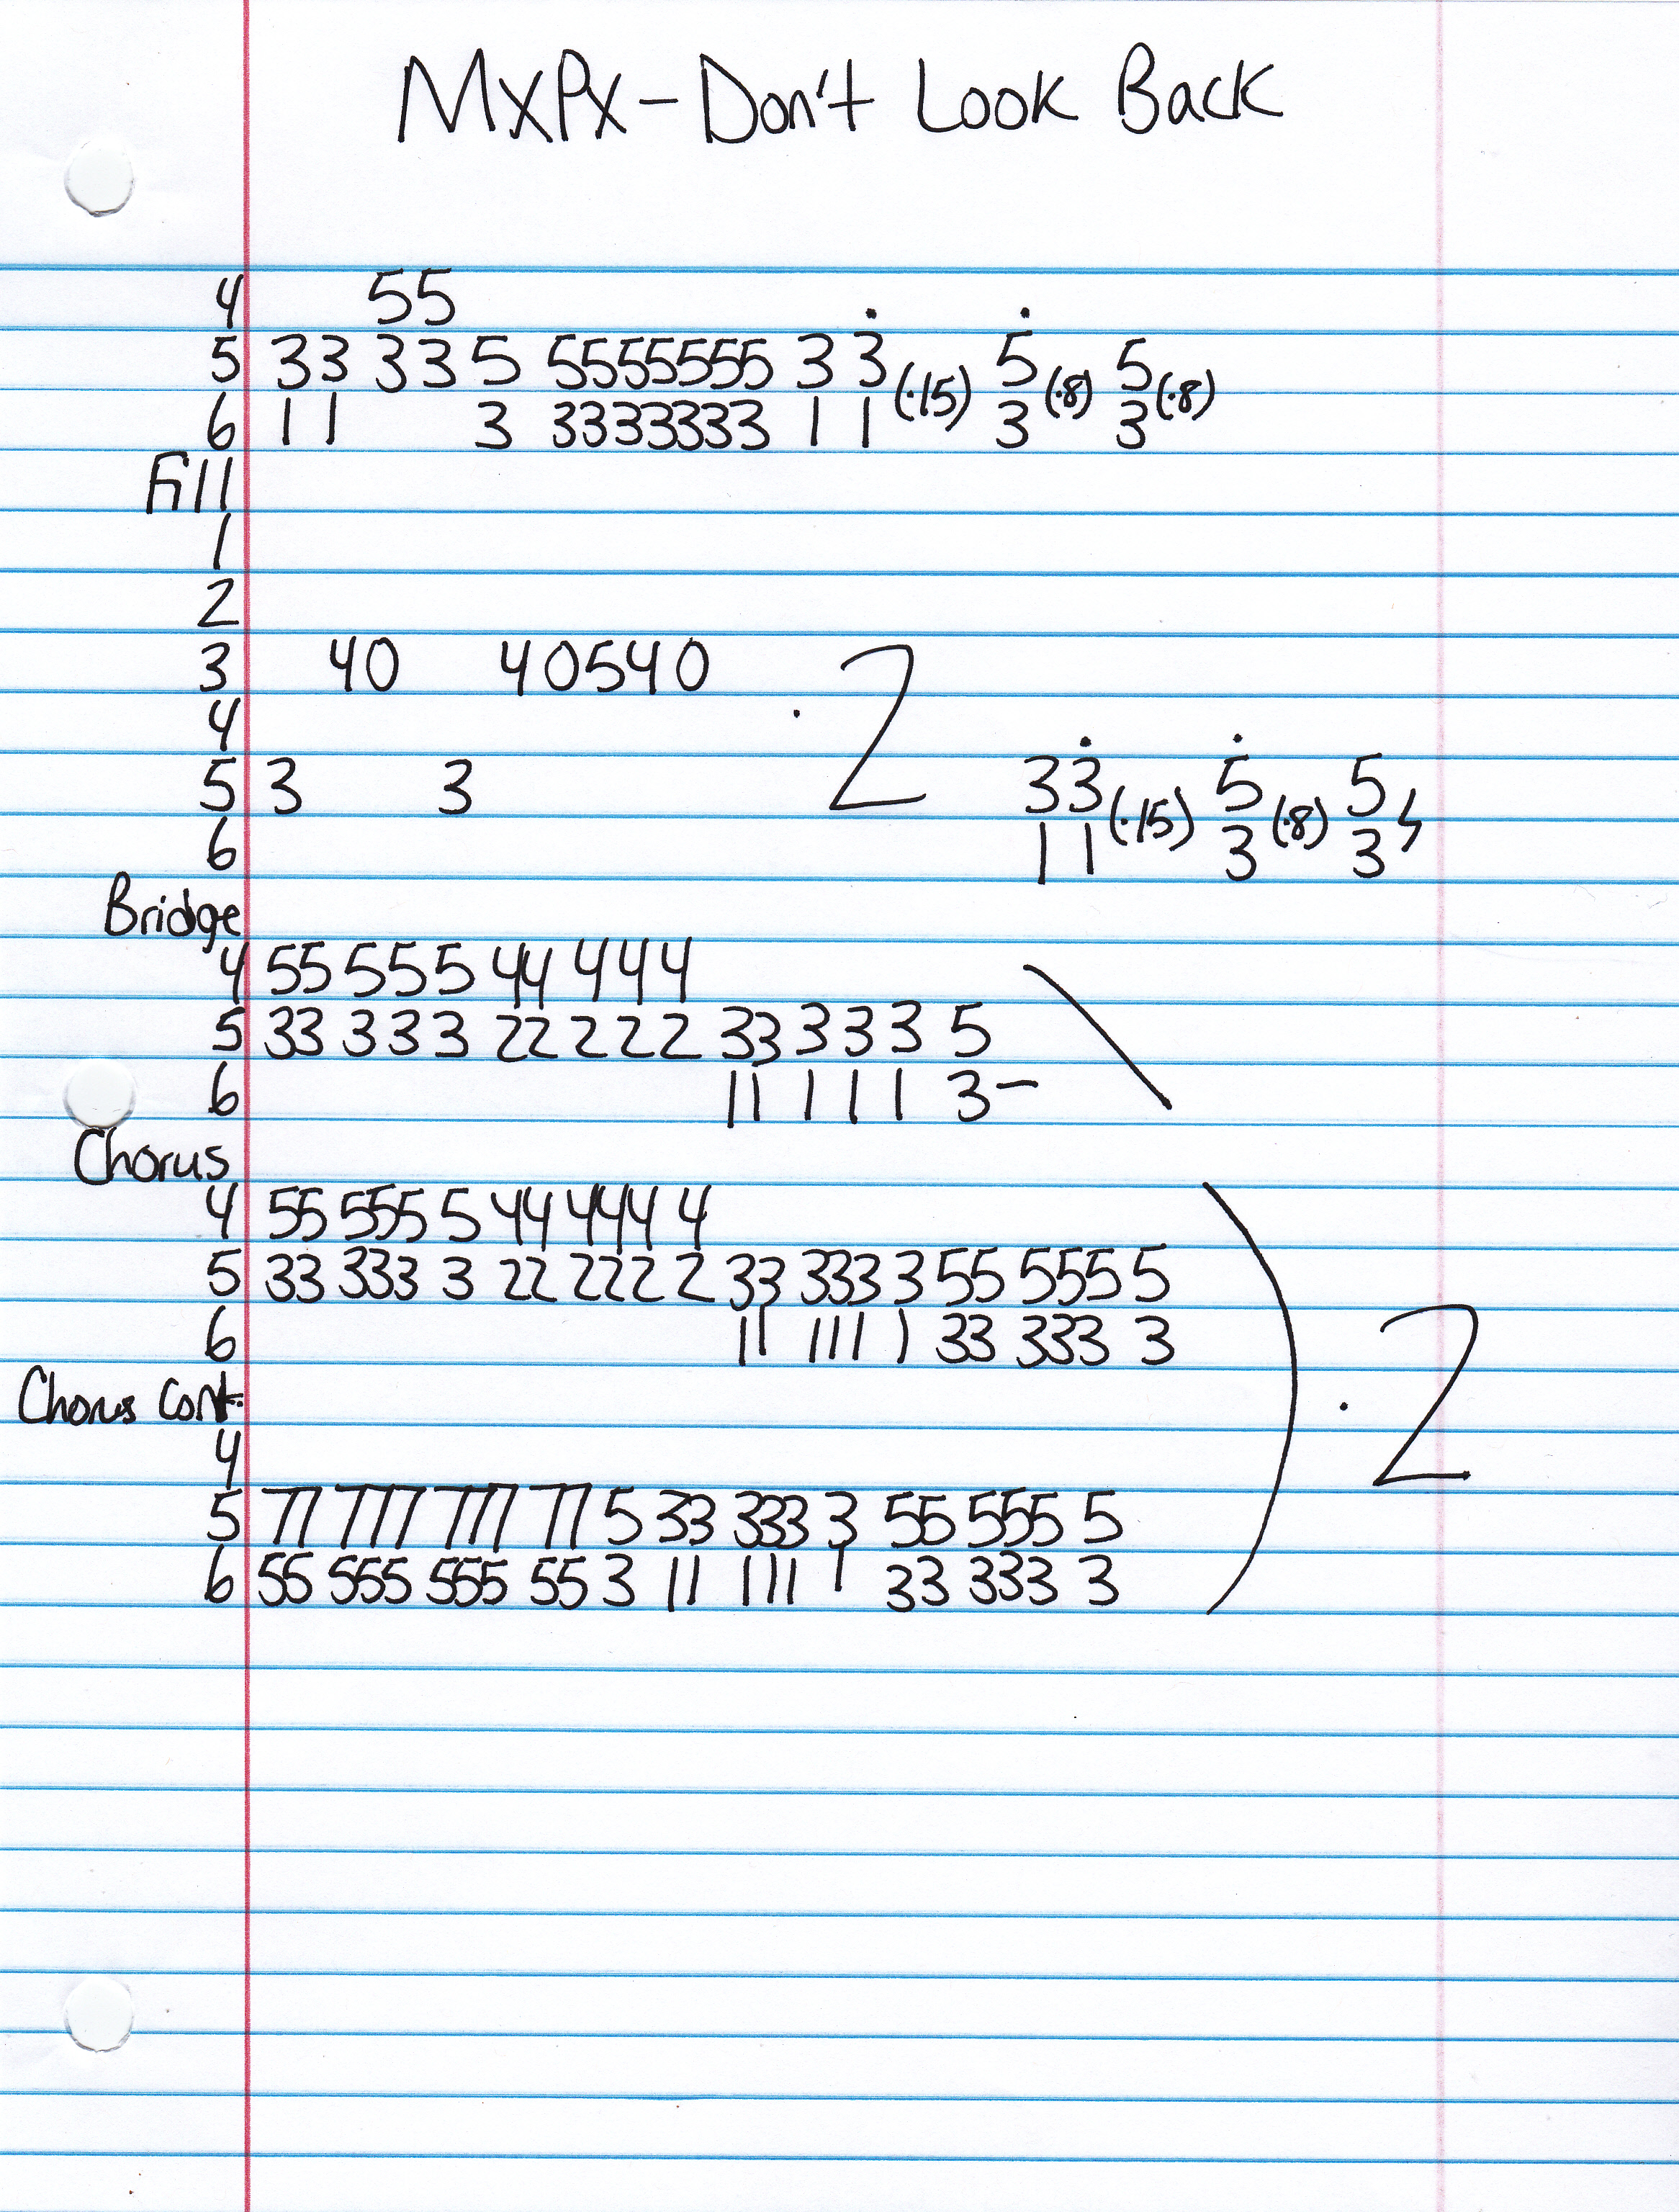 MxPx - Don't Look Back
4 55
5 33 33 5 5555555 3 3 (·15) 5 (·8) 5 (·8)
6 1 1 3 3333333 1 1 3 3
Fill
1
2
3 40 40540 · 2
4
5 3 3 3 3 (·15) 5 (·8) 5
6 1 1 3 3
Bridge
4 55 5 5 5 44 4 4 4
5 33 3 3 3 22 2 2 2 33 3 3 3 5
6 11 1 1 1 3 –
Chorus
4 55 555 5 44 444 4
5 33 333 3 22 222 2 33 333 3 55 555 5
6 11 111 1 33 333 3
Chorus Cont. · 2
4
5 77 777 777 77 5 33 333 3 55 555 5
6 55 555 555 55 3 11 111 1 33 333 3